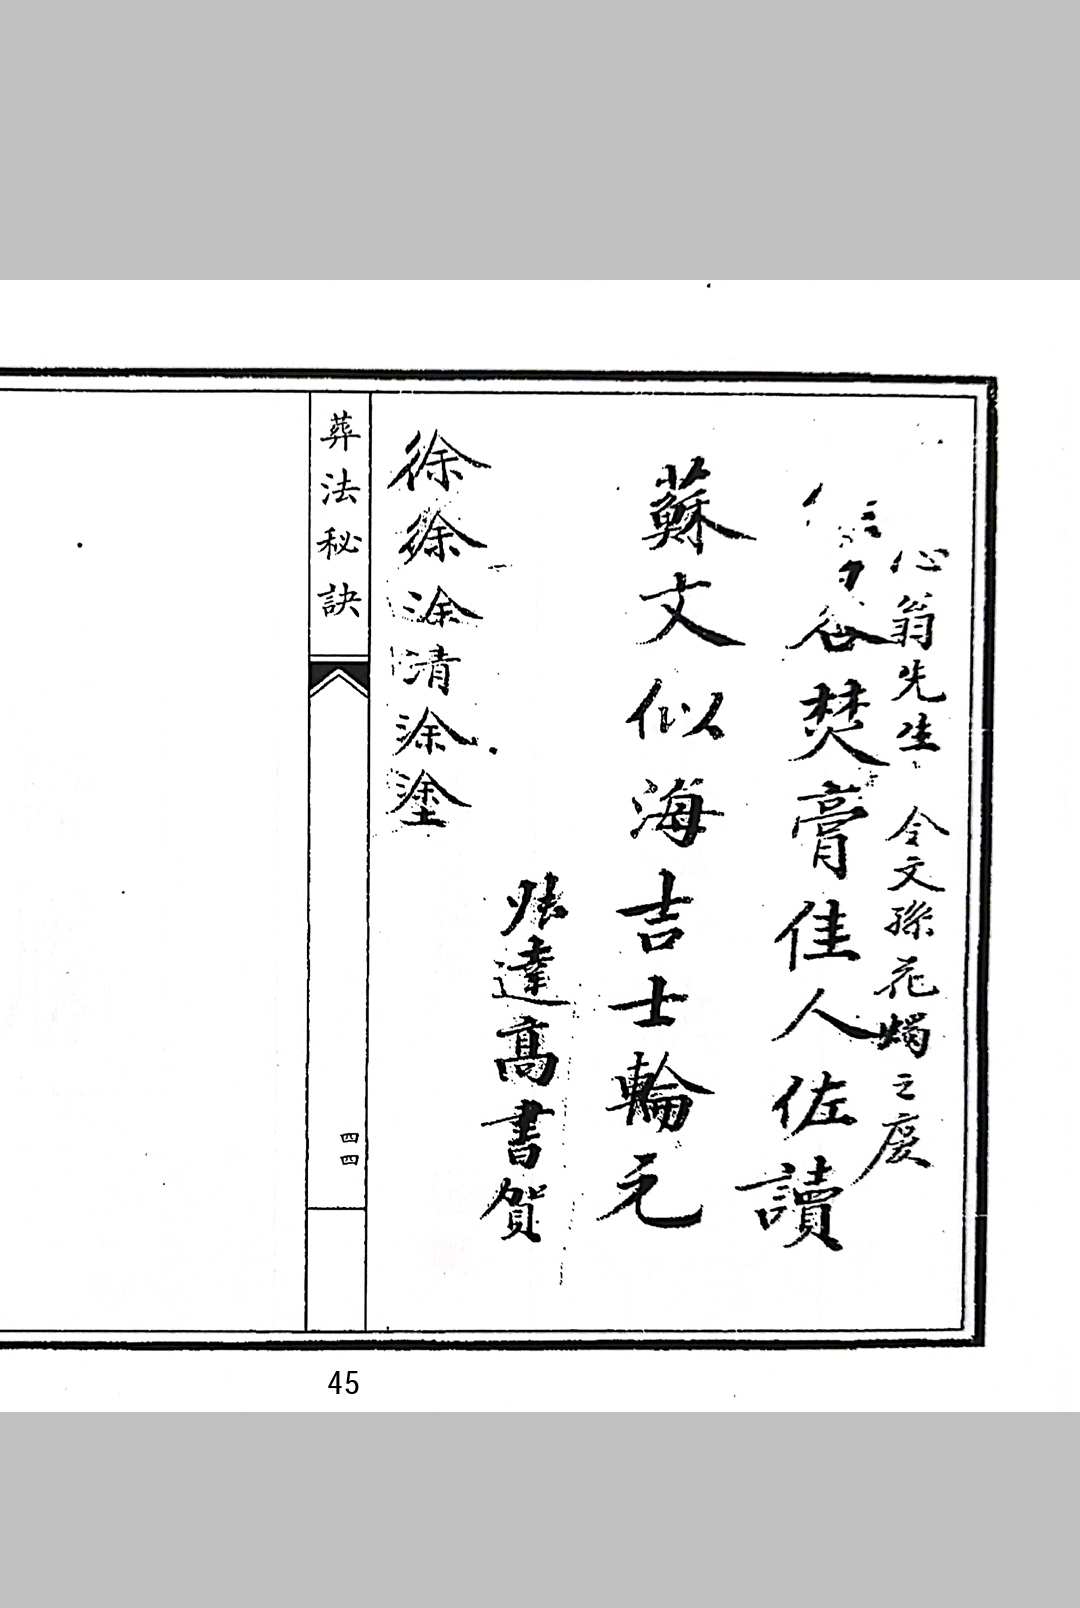 心翁先生 令文孫花燭之慶
谷焚膏佳人佐讀
蘇文似海吉士輪元
張達高書賀
徐徐涂清涂塗
葬法秘訣
四四
45